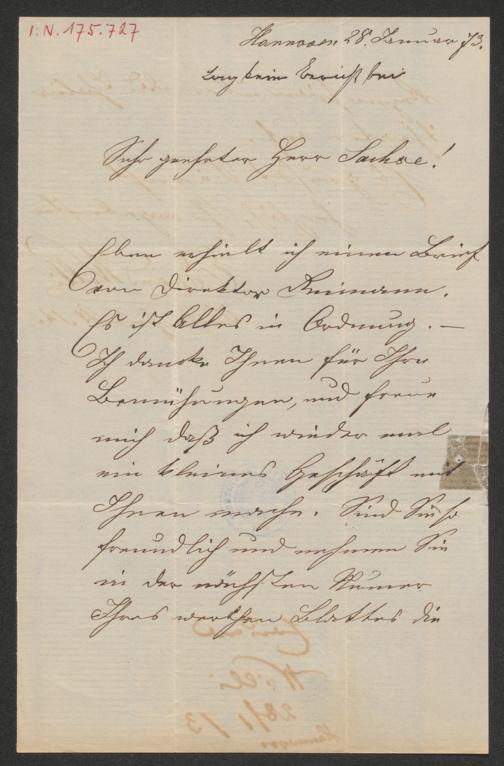 I.N. 175.727
Hannover 28. Januar 73.
lag kein Bericht bei
Sehr geehrter Herr Sachse!
Eben erhielt ich einen Brief
von Direktor Reimann.
Es ist Alles in Ordnung. –
Ich dancke Ihnen für Ihre
Bemühungen, und freue
mich daß ich wieder mal
ein kleines Geschäft mit
Ihnen mache. Sind Sie so
freundlich und nehmen Sie
in der nächsten Numer
Ihres werthen Blattes die